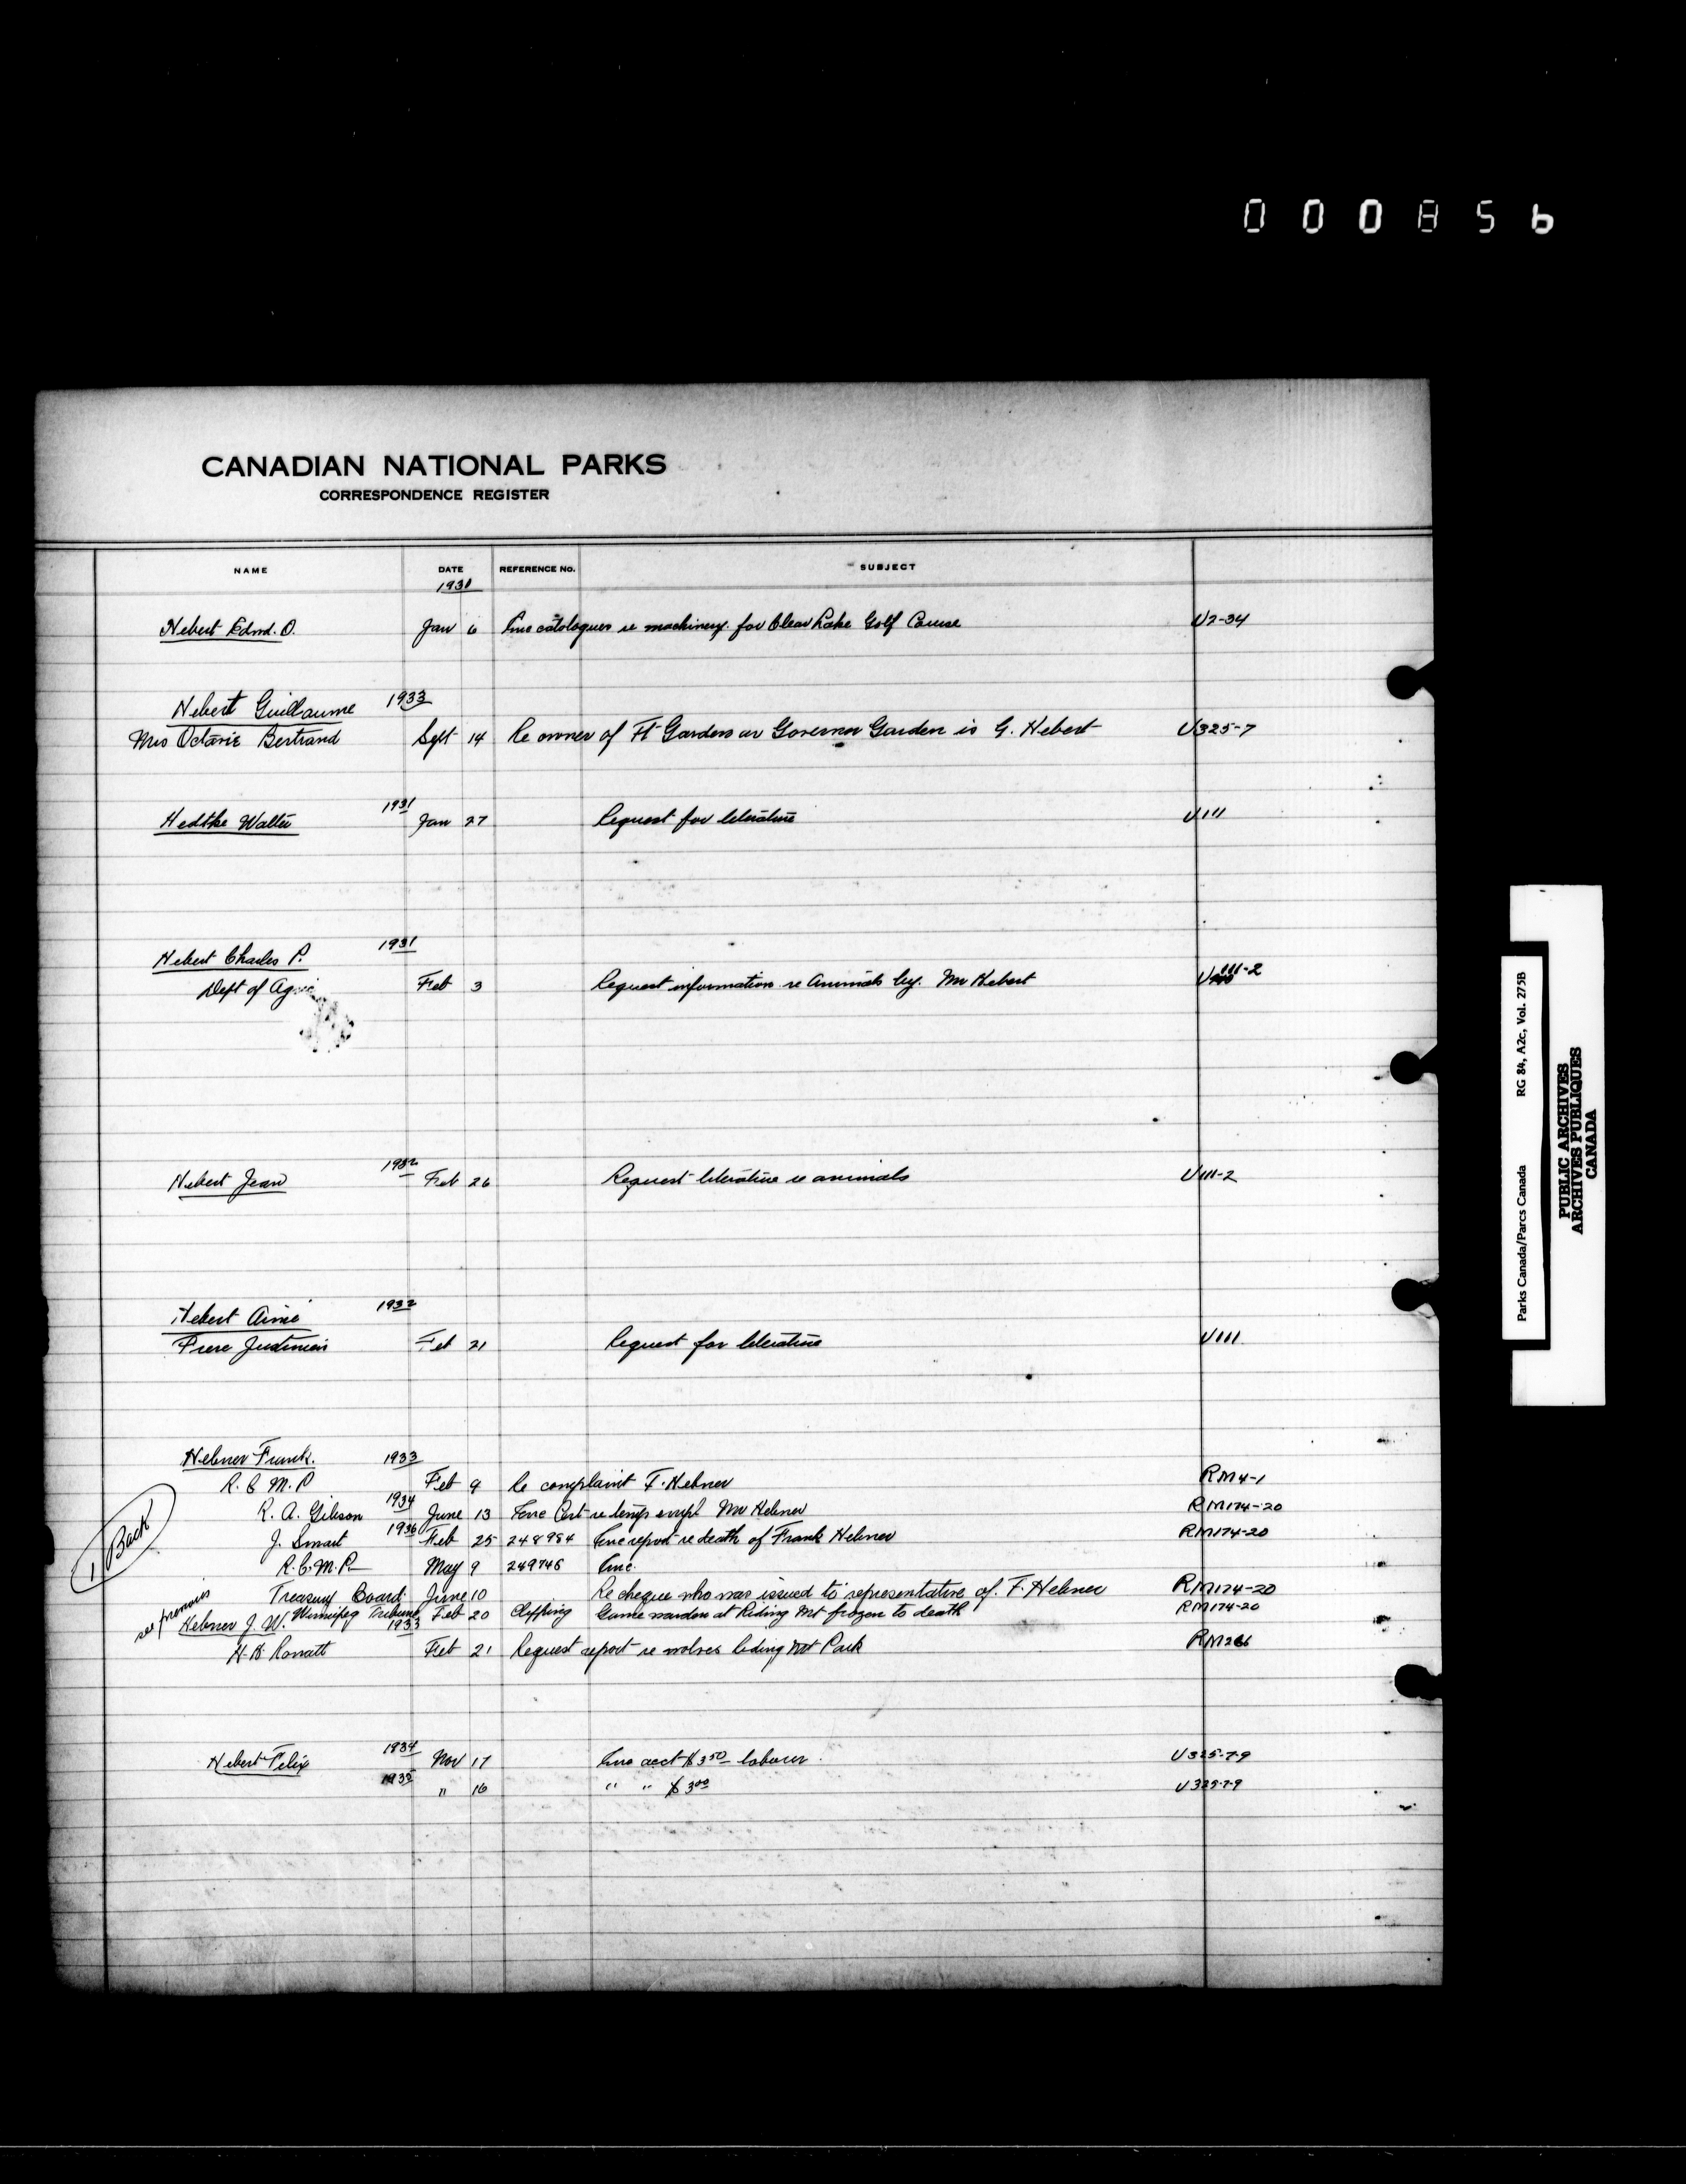 000856
CANADIAN NATIONAL PARKS
CORRESPONDENCE REGISTER
NAME DATE REFERENCE No. SUBJECT
1931
Hebert Edmd. O. Jan 6 Enc catologues re machinery for Clear Lake Golf Course U2-34
Hebert Guillaume 1933
Mrs Octavie Bertrand Sept 14 Re owner of Ft Gardens or Governor Garden is G. Hebert U325-7
1931
Hedtke Walter Jan 27 Request for literature U111
Hebert Charles P. 1931
Dept of Agric Feb 3 Request information re Animals by. Mr Hebert U111-2
Hebert Jean 1932 Feb 26 Request literature re animals U111-2
Hebert Aimé 1932
Frere Feb 21 Request for literature U111
Hebner Frank. 1933
R. C M. P Feb 9 Re complaint F. Hebner RM4-1
R. A. Gibson 1934 June 13 Enc Cert re temp empl Mr Hebner RM174-20
J. Smart 1936 Feb 25 248984 Enc report re death of Frank Hebner RM174-20
R.C.M.P. May 9 249746 Enc.
Back
Treasury Board June 10 Re cheque who was issued to representative of. F. Hebner RM174-20
Winnipeg Tribune Feb 20 Clipping Game warden at Riding Mt frozen to death RM174-20
see
Hebner J. W. 1933
H.B. Feb 21 Request report re wolves Riding Mt Park RM266
Hebert Felix 1934 Nov 17 Enc acct $3.50 labourer. U325-7-9
1935 " 16 " " $3.00 U325-7-9
Parks Canada/Parcs Canada RG 84, A2c, Vol. 275B
PUBLIC ARCHIVES
ARCHIVES PUBLIQUES
CANADA